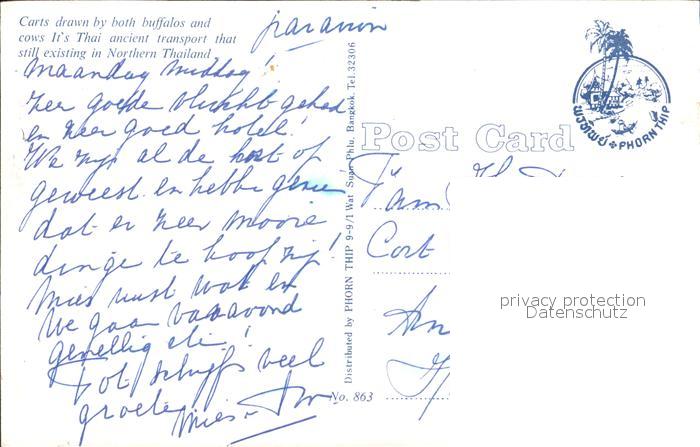 Carts drawn by both buffalos and
cows It's Thai ancient transport that
still existing in Northern Thailand
par avion
Maandag middag!
Zeer goede vlucht gehad
en zeer goed hotel!
We zijn al de hort op
geweest en hebbe gezien
dat er zeer mooie
dinge te koop zijn!
Mies rust wat en
we gaan vanavond
gezellig ete!
Tot schrijfs veel
groete
Mies
Distributed by PHORN THIP 9-9/1 Wat Suan Phlu, Bangkok. Tel. 32306
No. 863
Post Card
พรทิพย์ PHORN THIP
Fam
privacy protection
Datenschutz